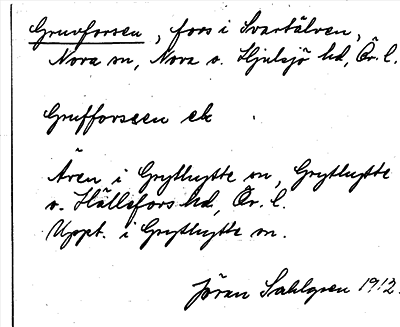 Gruvforsen, fors i Svartälven,
Nora sn, Nora o. Hjulsjö hd, Ör. l.
Grufforseen ek
Även i Grythytte sn, Grythytte
o. Hällefors hd, Ör. l.
Uppt. i Grythytte sn.
Jöran Sahlgren 1912.